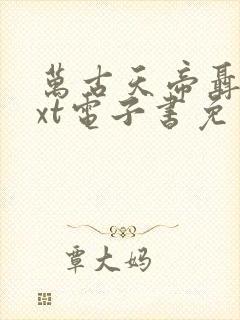 萬古天帝聶
xt電子書免
覃大妈